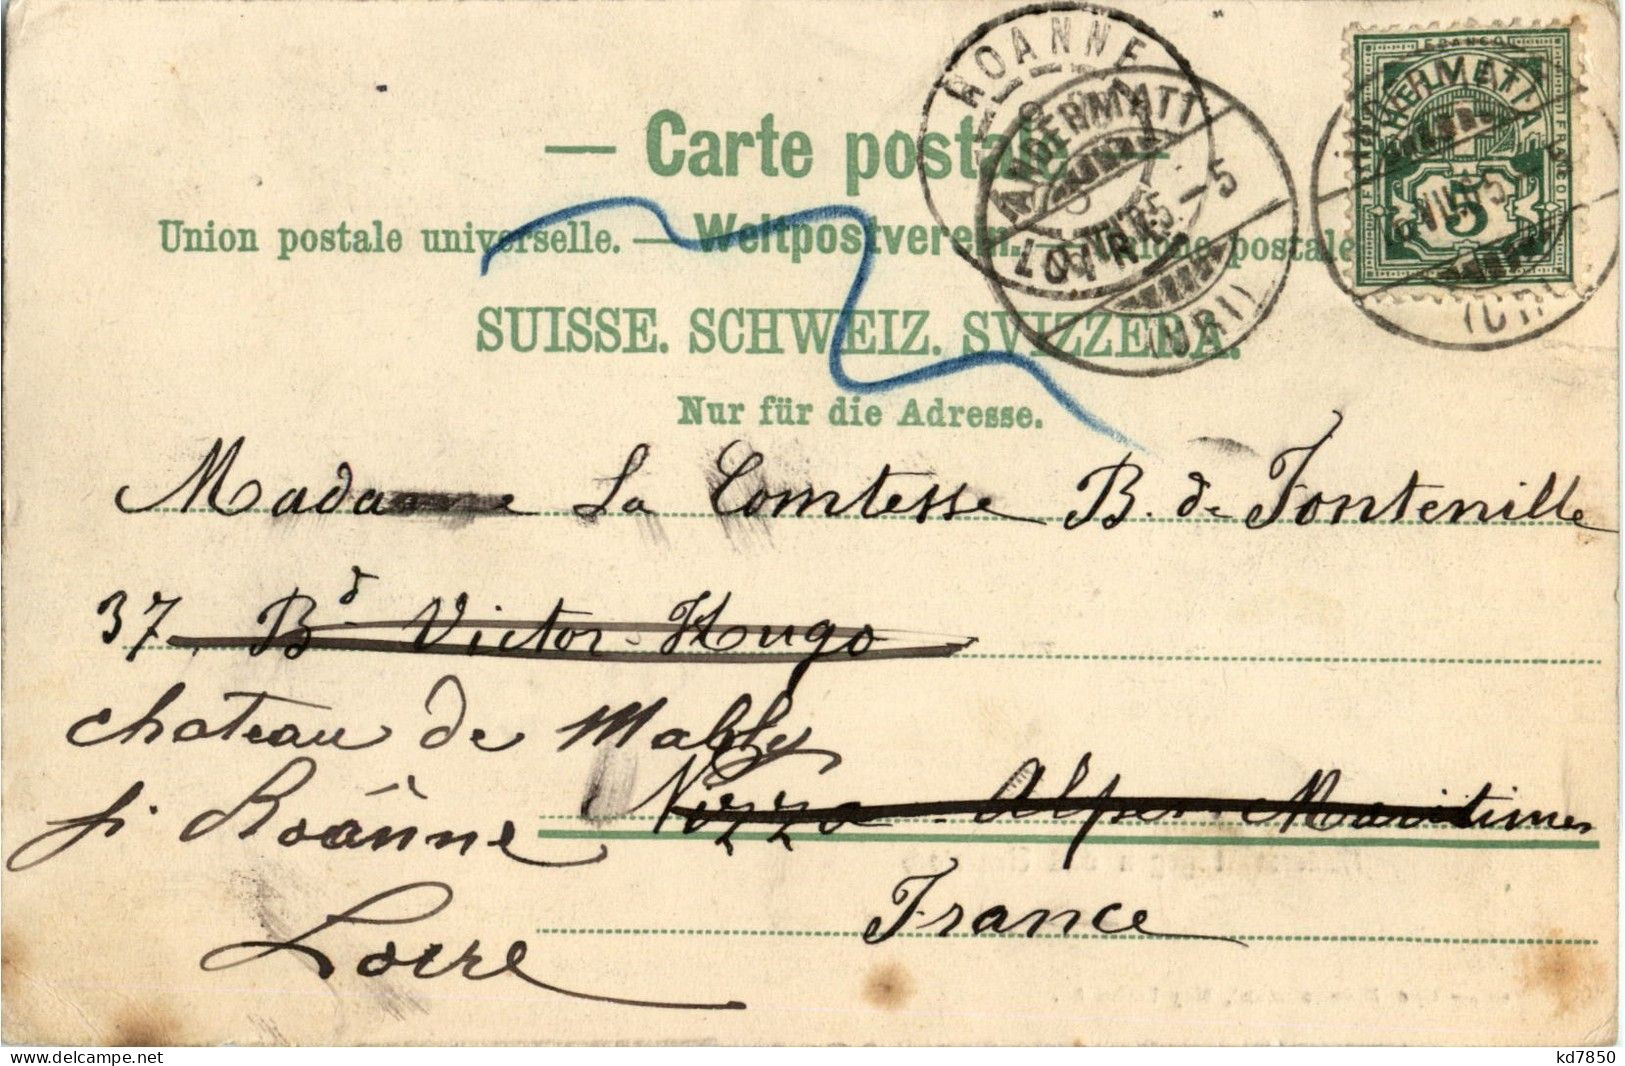 — Carte postale —
Union postale universelle. — Weltpostverein. — Unione postale
SUISSE. SCHWEIZ. SVIZZERA.
Nur für die Adresse.
ROANNE
LOIRE
ANDERMATT
(URI)
ANDERMATT
(URI)
HELVETIA
5
Madame La Comtesse B. de Fontenille
37, Bd Victor-Hugo
chateau de Mably
Nizza - Alpes Maritimes
pi Roanne
France
Loire
delcampe.net
kd7850